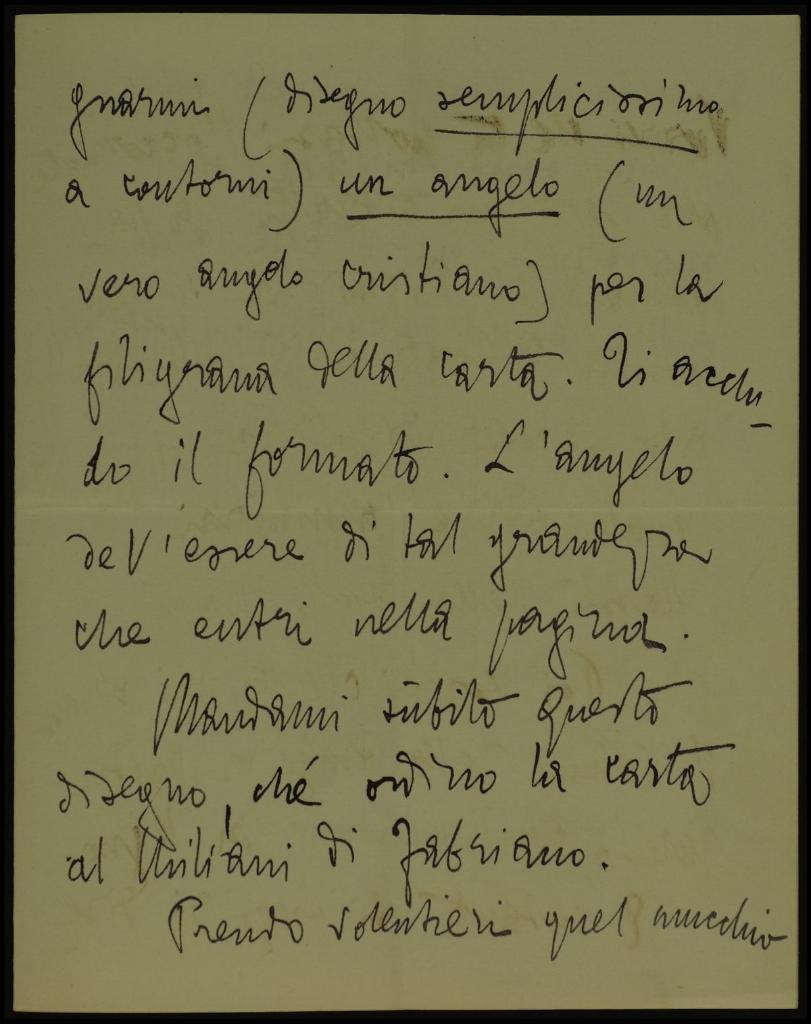 gnarmi (disegno semplicissimo
a contorni) un angelo (un
vero angelo cristiano) per la
filigrana della carta. Ti acclu-
do il formato. L'angelo
dev'essere di tal grandezza
che entri nella pagina.
Mandami sùbito questo
disegno, ché ordino la carta
al Miliani di Fabriano.
Prendo volentieri quel mucchio